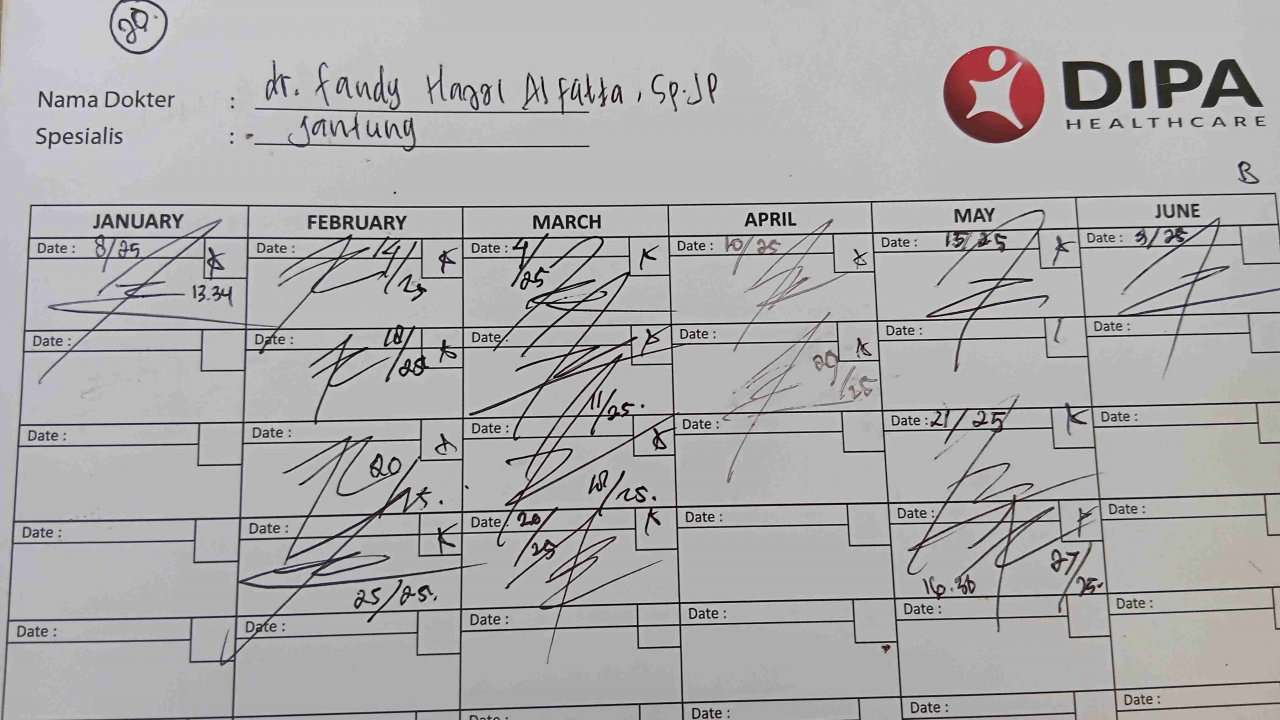 20.
Nama Dokter : dr. Fandy Hazzi Alfatta, Sp.JP
Spesialis : Jantung
DIPA
HEALTHCARE
B
JANUARY FEBRUARY MARCH APRIL MAY JUNE
Date : 8/25 Date : 14/25 K Date : 4/25 K Date : 10/25 Date : 15/25 Date : 3/25
13.34
Date : Date : 18/25 Date : 11/25. Date : 29/25 Date : Date :
Date : Date : 20/25. Date : 18/25. Date : Date : 21/25 K Date :
Date : Date : 25/25. K Date : 20/25 K Date : Date : 27/25. Date :
16.30
Date : Date : Date : Date : Date : Date :
Date : Date : Date : Date :